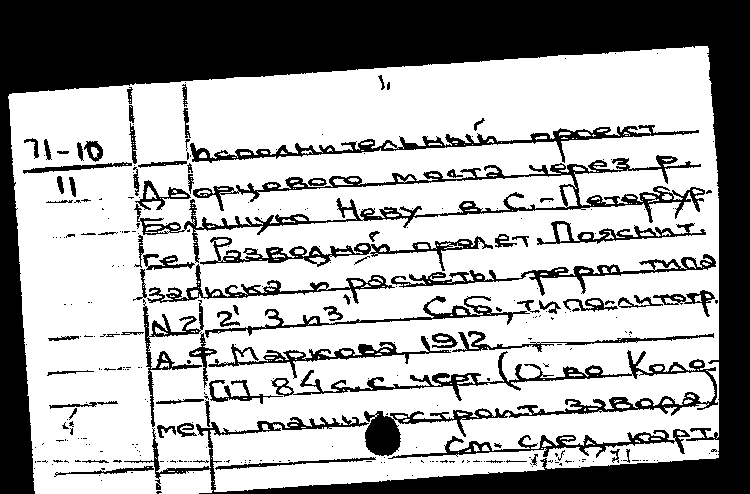 1,
71-10
11
Дополнительный проект
Дворцового моста через р.
Большую Неву в С.-Петербур-
ге. Разводной пролет. Пояснит.
записка и расчеты ферм типа
N 2, 2', 3 и 3'. Спб., типо-литогр.
А.Ф. Маркова, 1912.
[1], 84 с. с. черт. (О-во Коло-
мен. машиностроит. завода)
См. след. карт.